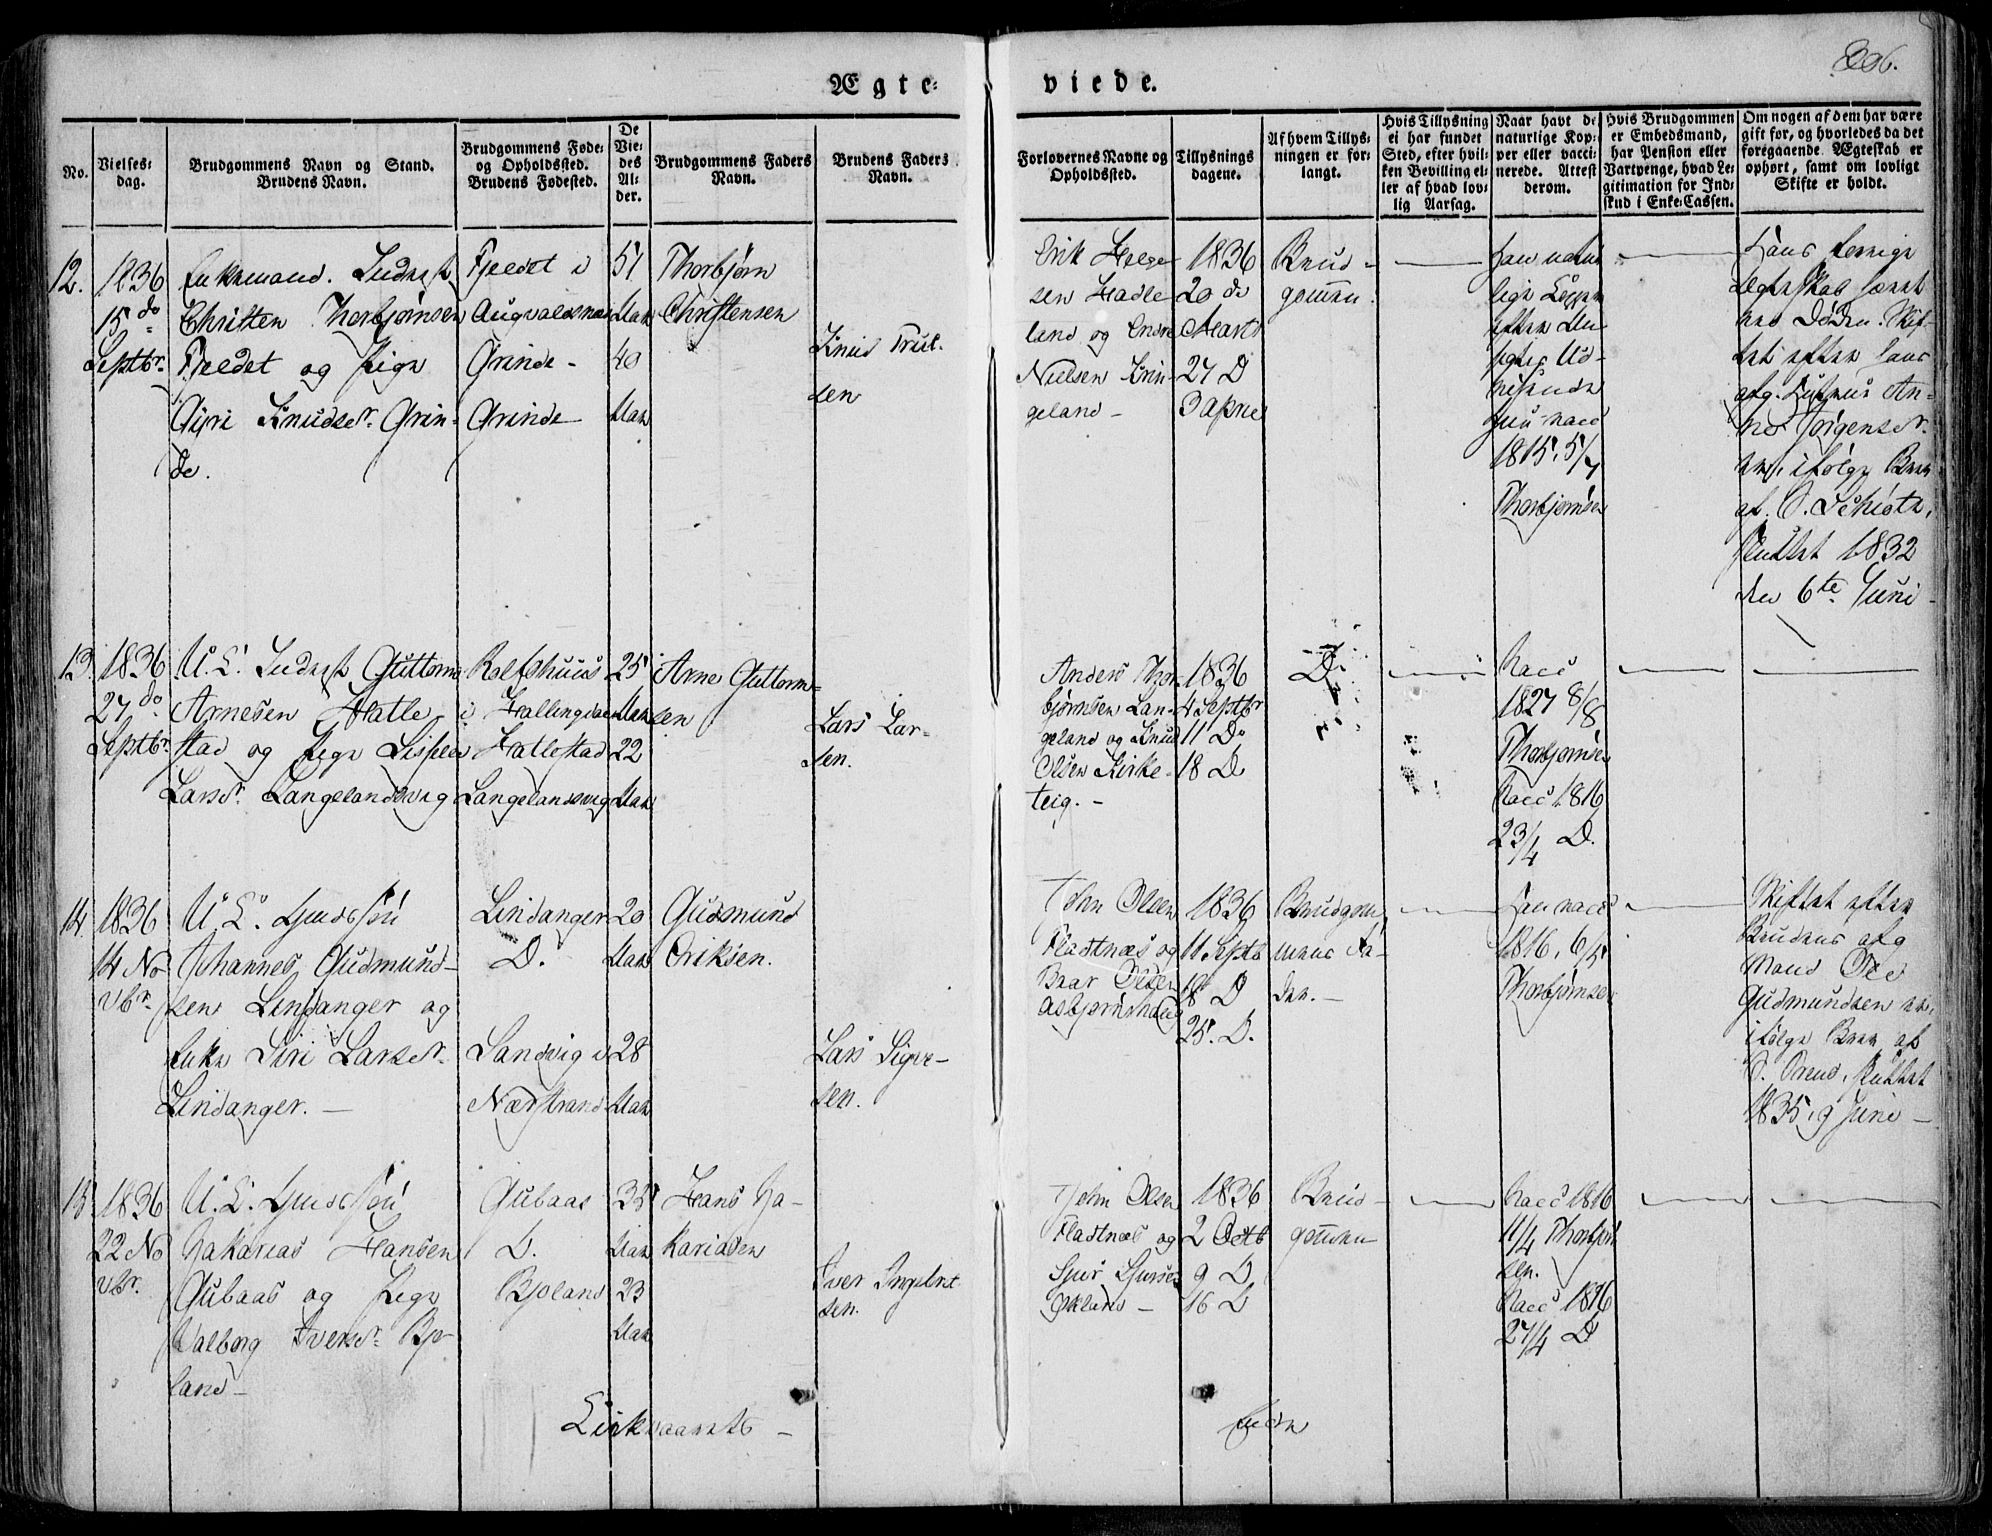 206.
Ægte-
viede.
No.
Vielses-
dag.
Brudgommens Navn og Stand.
Brudens Navn.
Brudgommens Føde-
og Opholdssted.
Brudens Fødested.
De
Vie-
des
Al-
der.
Brudgommens Faders
Navn.
Brudens Faders
Navn.
Forlovernes Navne og
Opholdssted.
Tillysnings
dagene.
Af hvem Tillys-
ningen er for-
langt.
Hvis Tillysning
ei har fundet
Sted, efter hvil-
ken Bevilling el-
ler af hvad lov-
lig Aarsag.
Naar havt de
naturlige Kop-
per eller vacci-
nerede. Attest
derom.
Hvis Brudgommen
er Embedsmand,
har Pension eller
Vartpenge, hvad Le-
gitimation for Ind-
skud i Enke-Cassen.
Om nogen af dem har være
gift før, og hvorledes da det
foregaaende Ægteskab er
ophørt, samt om lovligt
Skifte er holdt.
12.
1836
15 do
Septbr.
Enkemand. Inderst
Christen Thorbjørnsen
Fjeldet og Pige
Gyri Knudsdr. Grin-
de.
Fjeldet i
Augvaldsnæs
Grinde-
Grinde
51
Aar
40
Aar
Thorbjørn
Christensen
Knud Trul-
sen
Erik Helge-
sen Hadle-
land og Endre
Nielsen Krin-
geland-
1836
20 de
Marts
27 D
3 April
Brud-
gommen.
han natur
lige Kopper
efter An
sigtets Ud-
viisende
hun vacc
1815. 5/7
Thorbjørnsen
Hans forrige
Ægteskab hævet
ved Døden. Skif-
tet efter hans
afg. Kone An-
ne Jørgensdr.
er, ifølge Brev
af O. Schiøtz,
sluttet 1832
den 6te Juni
13.
1836
27 do
Septbr.
U. K. Inderst Guttorm
Arnesen Hatle-
stad og Pige
Larsdr. Langelandsvig
Rolfshuus
i Hallingdal
Hatlestad
Langelandsvig
25
Aar
22
Aar
Arne Guttorm-
sen
Lars Lar-
sen.
Anders Thor
bjørnsen Lan-
geland og Knud
Olsen Kirke-
teig.-
1836
4 Septbr
11 Do
18 D
D.
Vacc
1827 8/8
Thorbjørnsen
Vacc 1816
23/4 D.
14.
1836
14 No
vbr.
U. K. Huusm
Johannes Gudmund-
sen Lindanger og
Enke Siri Larsdr.
Lindanger.-
Lindanger
D.
Sandvig i
Nærstrand
20
Aar
28
Aar
Gudmund
Eriksen.
Lars Sigve-
sen.
John Olsen
Fladtnæs og
Baar Olsen
Asbjørnshaug
1836
11 Septb
18 D
25. D.
Brudgom
mens Fa-
der.-
han vacc
1816, 6/5
Thorbjørnsen
Skiftet efter
Brudens afg
Mand Ole
Gudmundsen er,
ifølge Brev af
sluttet
1835, 9 Juni-
15
1836
22 No
vbr.
U. K.
Zakarias Hansen
Gubaas og Pige
Valborg Iversdr. Bjo-
land-
Gubaas
D.
Bjoland
35
Aar
23
Aar
Hans Za-
kariasen
Iver Ingebret
sen.
John Olsen
Fladtnæs og
Sjur Sjursen
Økland-
1836
2 Octb
9 D
16 D
Brud-
gommen
Vacc 1816
11/4 Thorbjørn
sen.
Vacc 1816
27/4 D